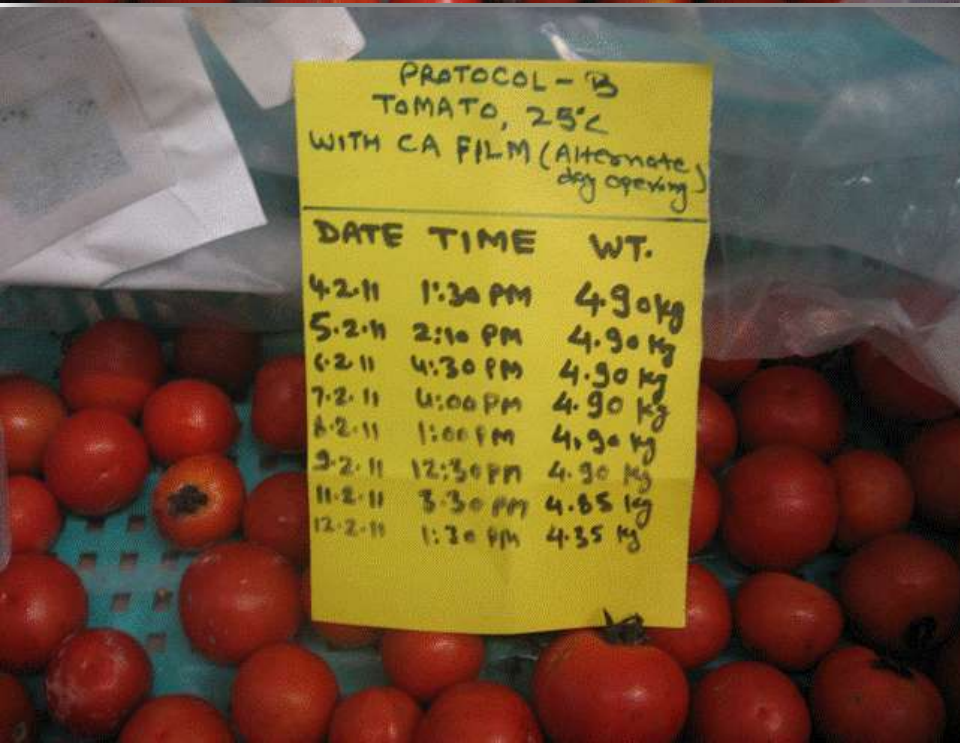 PROTOCOL - B
TOMATO, 25°C
WITH CA FILM (Alternate
day opening)
DATE TIME WT.
4.2.11 1:30 PM 4.90 kg
5.2.11 2:10 PM 4.90 kg
6.2.11 4:30 PM 4.90 kg
7.2.11 4:00 PM 4.90 kg
8.2.11 1:00 PM 4.90 kg
9.2.11 12:30 PM 4.90 kg
11.2.11 3.30 PM 4.85 kg
12.2.11 1:30 PM 4.35 kg